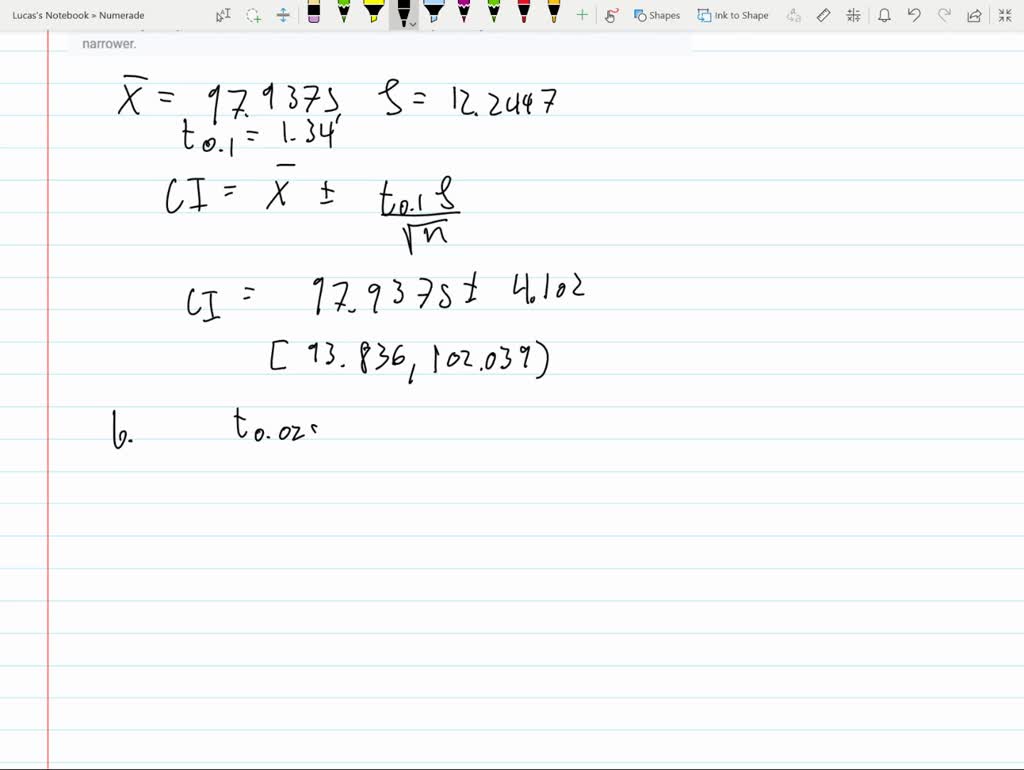 Lucas's Notebook » Numerade
Shapes
Ink to Shape
narrower.
X̄ = 97.9375, S = 12.2447
t0.1 = 1.34
CI = X̄ ± t0.1 S / √n
CI = 97.9375 ± 4.102
[93.836, 102.039)
b. t0.02